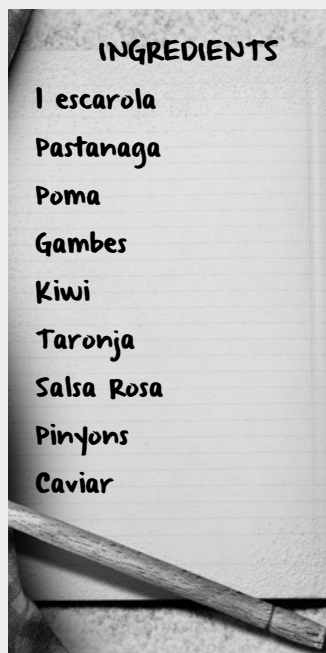 INGREDIENTS
1 escarola
Pastanaga
Poma
Gambes
Kiwi
Taronja
Salsa Rosa
Pinyons
Caviar